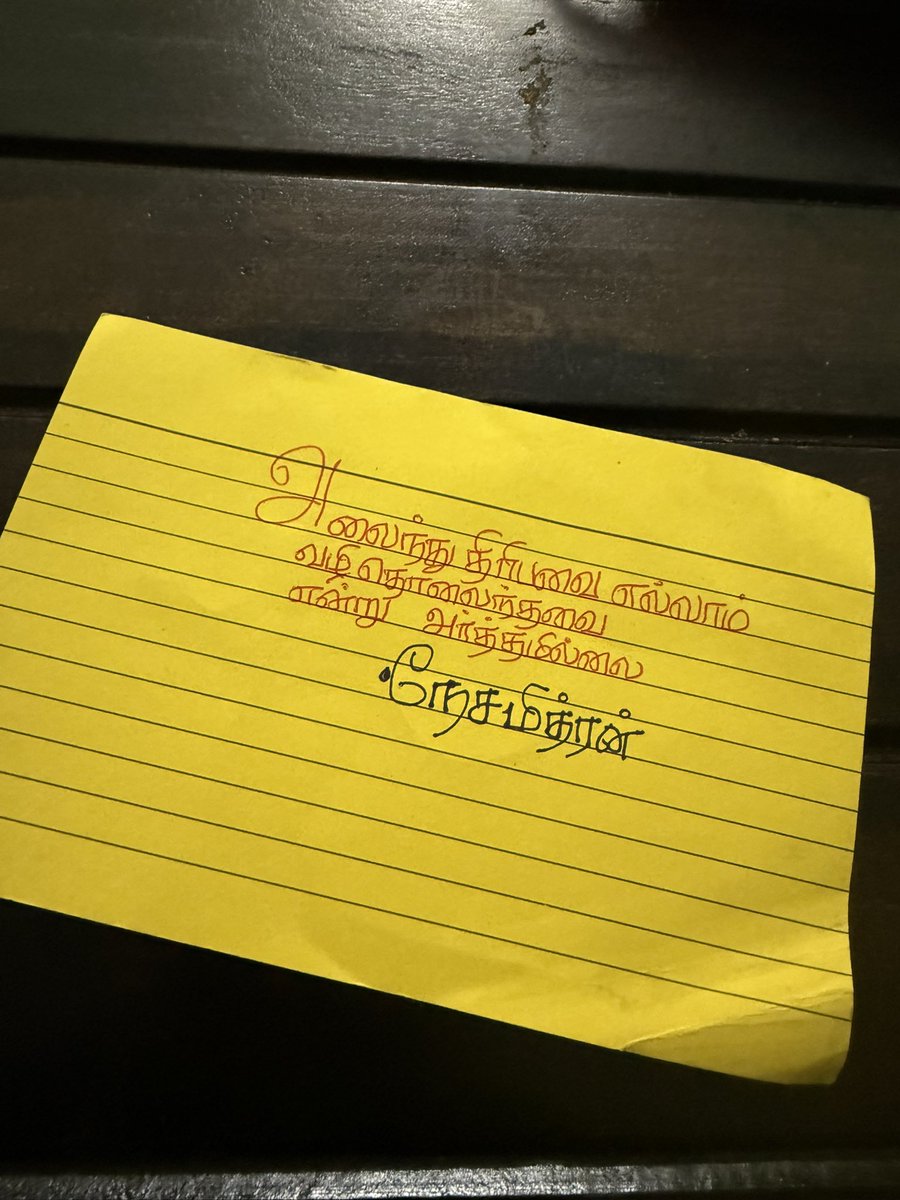 அலைந்து திரிபவை எல்லாம்
வழி தொலைந்தவை
என்று அர்த்தமில்லை
நேசமித்ரன்